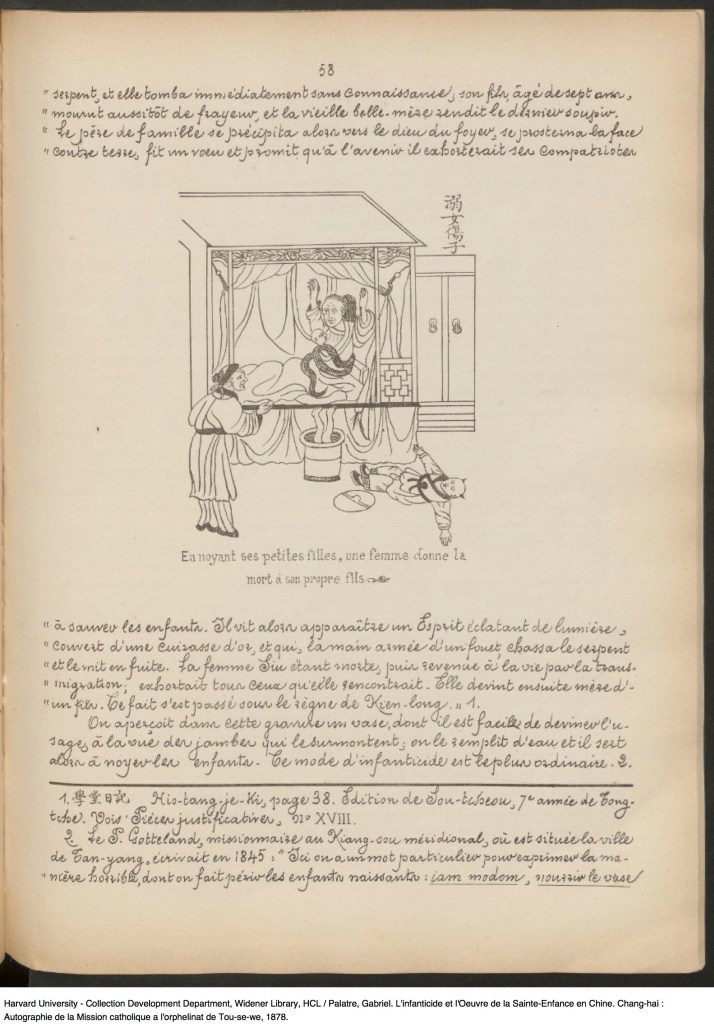 58
" serpent, et elle tomba immédiatement sans connaissance; son fils, âgé de sept ans,
" mourut aussitôt de frayeur, et la vieille belle-mère rendit le dernier soupir.
" Le père de famille se précipita alors vers le dieu du foyer, se prosterna la face
" contre terre, fit un vœu et promit qu'à l'avenir il exhorterait ses compatriotes
溺女傷子
En noyant ses petites filles, une femme donne la
mort à son propre fils
" à sauver les enfants. Il vit alors apparaître un Esprit éclatant de lumière,
" couvert d'une cuirasse d'or, et qui, la main armée d'un fouet, chassa le serpent
" et le mit en fuite. La femme Siu étant morte, puis revenue à la vie par la trans-
" migration, exhortait tous ceux qu'elle rencontrait. Elle devint ensuite mère d'-
" un fils. Ce fait s'est passé sous le règne de Kien-long. " 1.
On aperçoit dans cette gravure un vase, dont il est facile de deviner l'u-
sage, à la vue des jambes qui le surmontent; on le remplit d'eau et il sert
alors à noyer les enfants. Ce mode d'infanticide est le plus ordinaire. 2.
1. 學堂日記 Hio-tang-je-Ki, page 38. Edition de Sou-tcheou, 7e année de Tong-
tche. Voir Pièces justificatives, no XVIII.
2. Le P. Gotteland, missionnaire au Kiang-sou méridional, où est située la ville
de Tan-yang, écrivait en 1845 : " Ici on a un mot particulier pour exprimer la ma-
" nière horrible, dont on fait périr les enfants naissants : iam modom, nourrir le vase
Harvard University - Collection Development Department, Widener Library, HCL / Palatre, Gabriel. L'infanticide et l'Oeuvre de la Sainte-Enfance en Chine. Chang-hai :
Autographie de la Mission catholique a l'orphelinat de Tou-se-we, 1878.